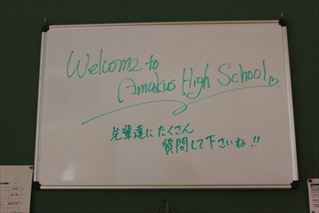 Welcome to
Amakus High School
先輩達にたくさん
質問して下さいね!!